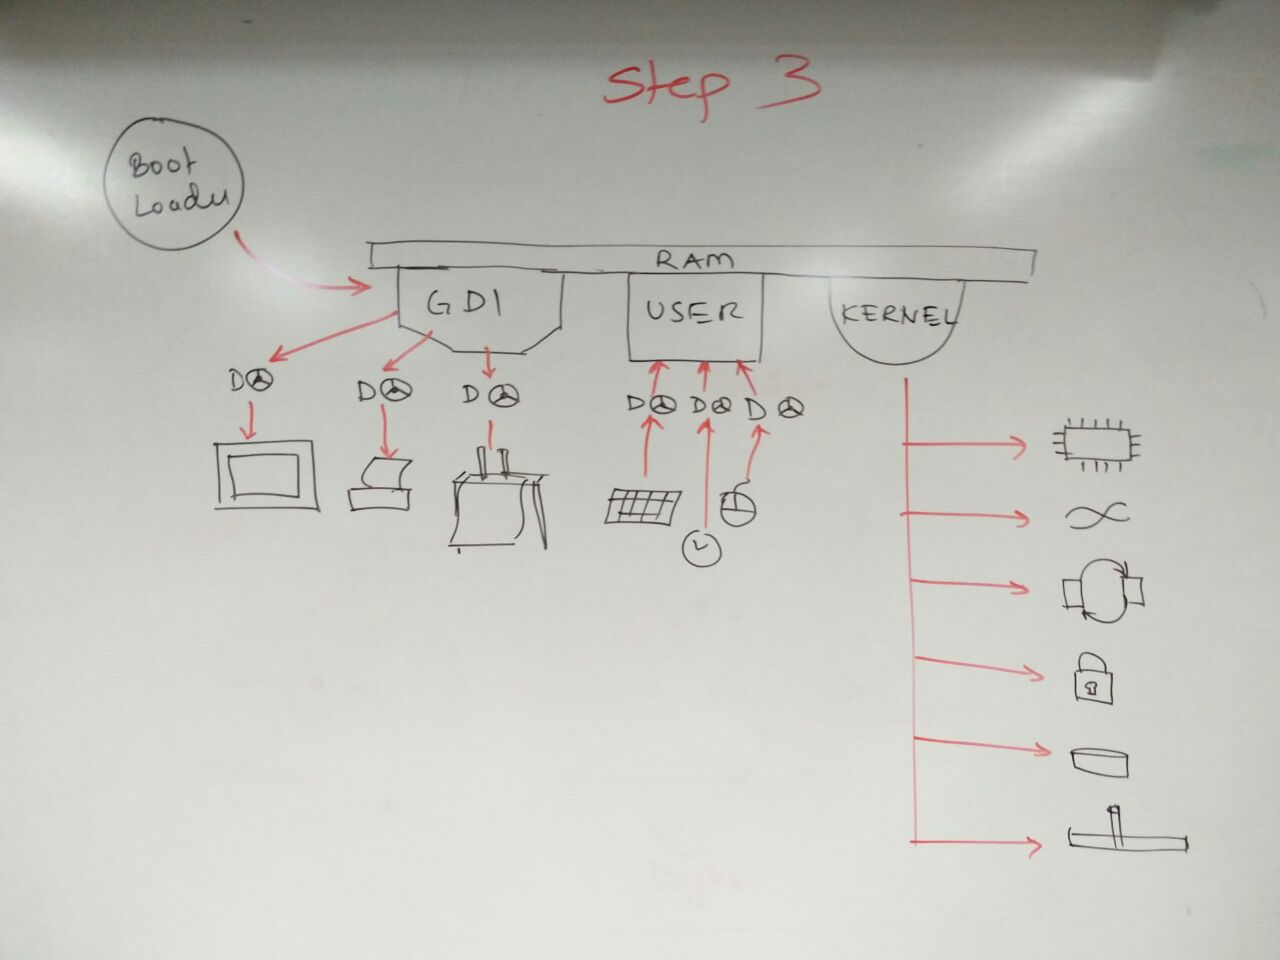 Step 3
Boot
Loader
RAM
GDI
USER
KERNEL
D
D
D
D
D
D